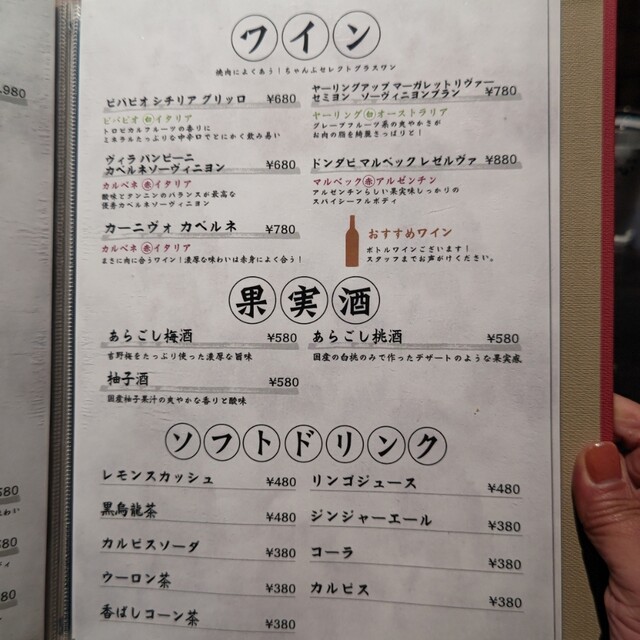 ワイン
焼肉によくあう！ちゃんぷセレクトグラスワン
ビバビオ シチリア グリッロ ¥680
ビバビオ 白 イタリア
トロピカルフルーツの香りに
ミネラルたっぷりな中辛口でとにかく飲み易い
ヴィラ パンピーニ
カベルネソーヴィニヨン ¥680
カルベネ 赤 イタリア
酸味とタンニンのバランスが最高な
優秀カベルネソーヴィニヨン
カーニヴォ カベルネ ¥780
カルベネ 赤 イタリア
まさに肉に合うワイン！濃厚な味わいは赤身によく合う！
ヤーリングアップ マーガレットリヴァー
セミヨン ソーヴィニヨンブラン ¥780
ヤーリング 白 オーストラリア
グレープフルーツ系の爽やかさが
お肉の脂を綺麗さっぱりと！
ドンダビ マルベック レゼルヴァ ¥880
マルベック 赤 アルゼンチン
アルゼンチンらしい果実味しっかりの
スパイシーフルボディ
おすすめワイン
ボトルワインございます！
スタッフまでお声がけください。
果実酒
あらごし梅酒 ¥580
吉野梅をたっぷり使った濃厚な旨味
あらごし桃酒 ¥580
国産の白桃のみで作ったデザートのような果実感
柚子酒 ¥580
国産柚子果汁の爽やかな香りと酸味
ソフトドリンク
レモンスカッシュ ¥480
黒烏龍茶 ¥480
カルピスソーダ ¥380
ウーロン茶 ¥380
香ばしコーン茶 ¥380
リンゴジュース ¥480
ジンジャーエール ¥380
コーラ ¥380
カルピス ¥380
,980